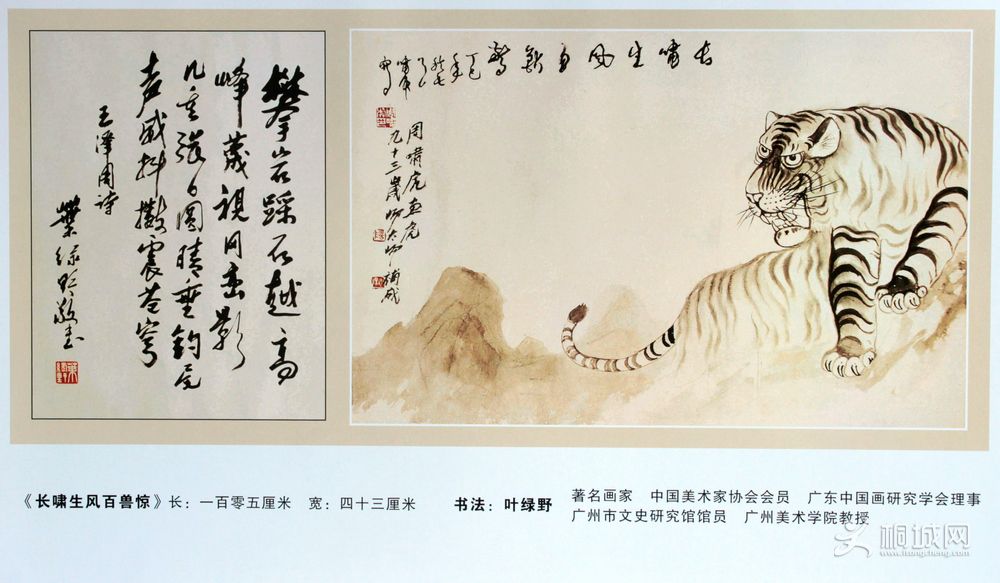 攀岩踩石越高
峰蔑視冈峦影
几重張目圓睛垂鈎尾
声威抖擻震苍穹
王澤周詩
葉绿野敬书
長嘯生风百獸驚
丁巳
周嘯虎画虎
九十三歲
補成
《长啸生风百兽惊》长：一百零五厘米 宽：四十三厘米
书法：叶绿野
著名画家 中国美术家协会会员 广东中国画研究学会理事
广州市文史研究馆馆员 广州美术学院教授
桐城网
itongcheng.com